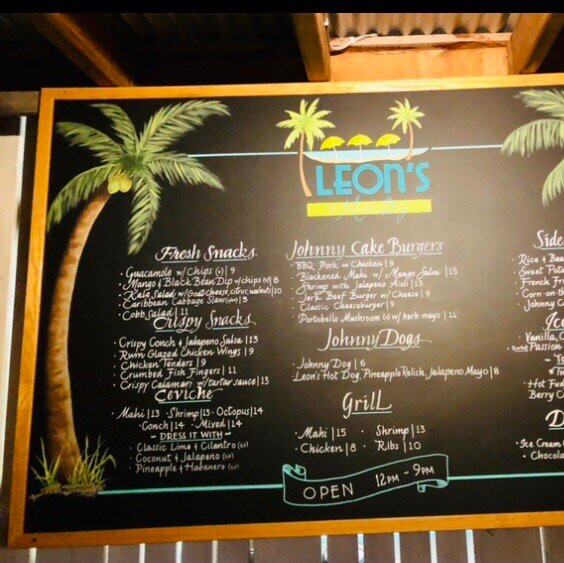 LEON'S
Fresh Snacks
· Guacamole w/ Chips (v) | 9
· Mango & Black Bean Dip w/chips (v) | 8
· Kale Salad w/ Goat Cheese, citrus, walnuts | 10
· Caribbean Cabbage Slaw | 5
· Cobb Salad | 11
Crispy Snacks
· Crispy Conch & Jalapeno Salsa | 13
· Rum Glazed Chicken Wings | 9
· Chicken Tenders | 9
· Crumbed Fish Fingers | 11
· Crispy Calamari w/tartar sauce | 13
Ceviche
· Mahi | 13 · Shrimp | 13 · Octopus | 14
· Conch | 14 · Mixed | 14
~ DRESS IT WITH ~
· Classic Lime & Cilantro
· Coconut & Jalapeno
· Pineapple & Habanero
Johnny Cake Burgers
· BBQ Pork or Chicken | 9
· Blackened Mahi w/ Mango Salsa | 15
· Shrimp with Jalapeno Aioli | 13
· Jerk Beef Burger w/ Cheese | 9
· Classic Cheeseburger | 9
· Portobello Mushroom (v) w/ herb mayo | 11
Johnny Dogs
· Johnny Dog | 6
· Leon's Hot Dog, Pineapple Relish, Jalapeno Mayo | 8
Grill
· Mahi | 15 · Shrimp | 13
· Chicken | 8 · Ribs | 10
OPEN 12PM - 9PM
Side
Rice & Bea
Sweet Potat
French Fr
Corn-on-th
Johnny C
Ice
Vanilla, C
Passion
Hot Fud
Berry C
D
· Ice Cream
· Chocola